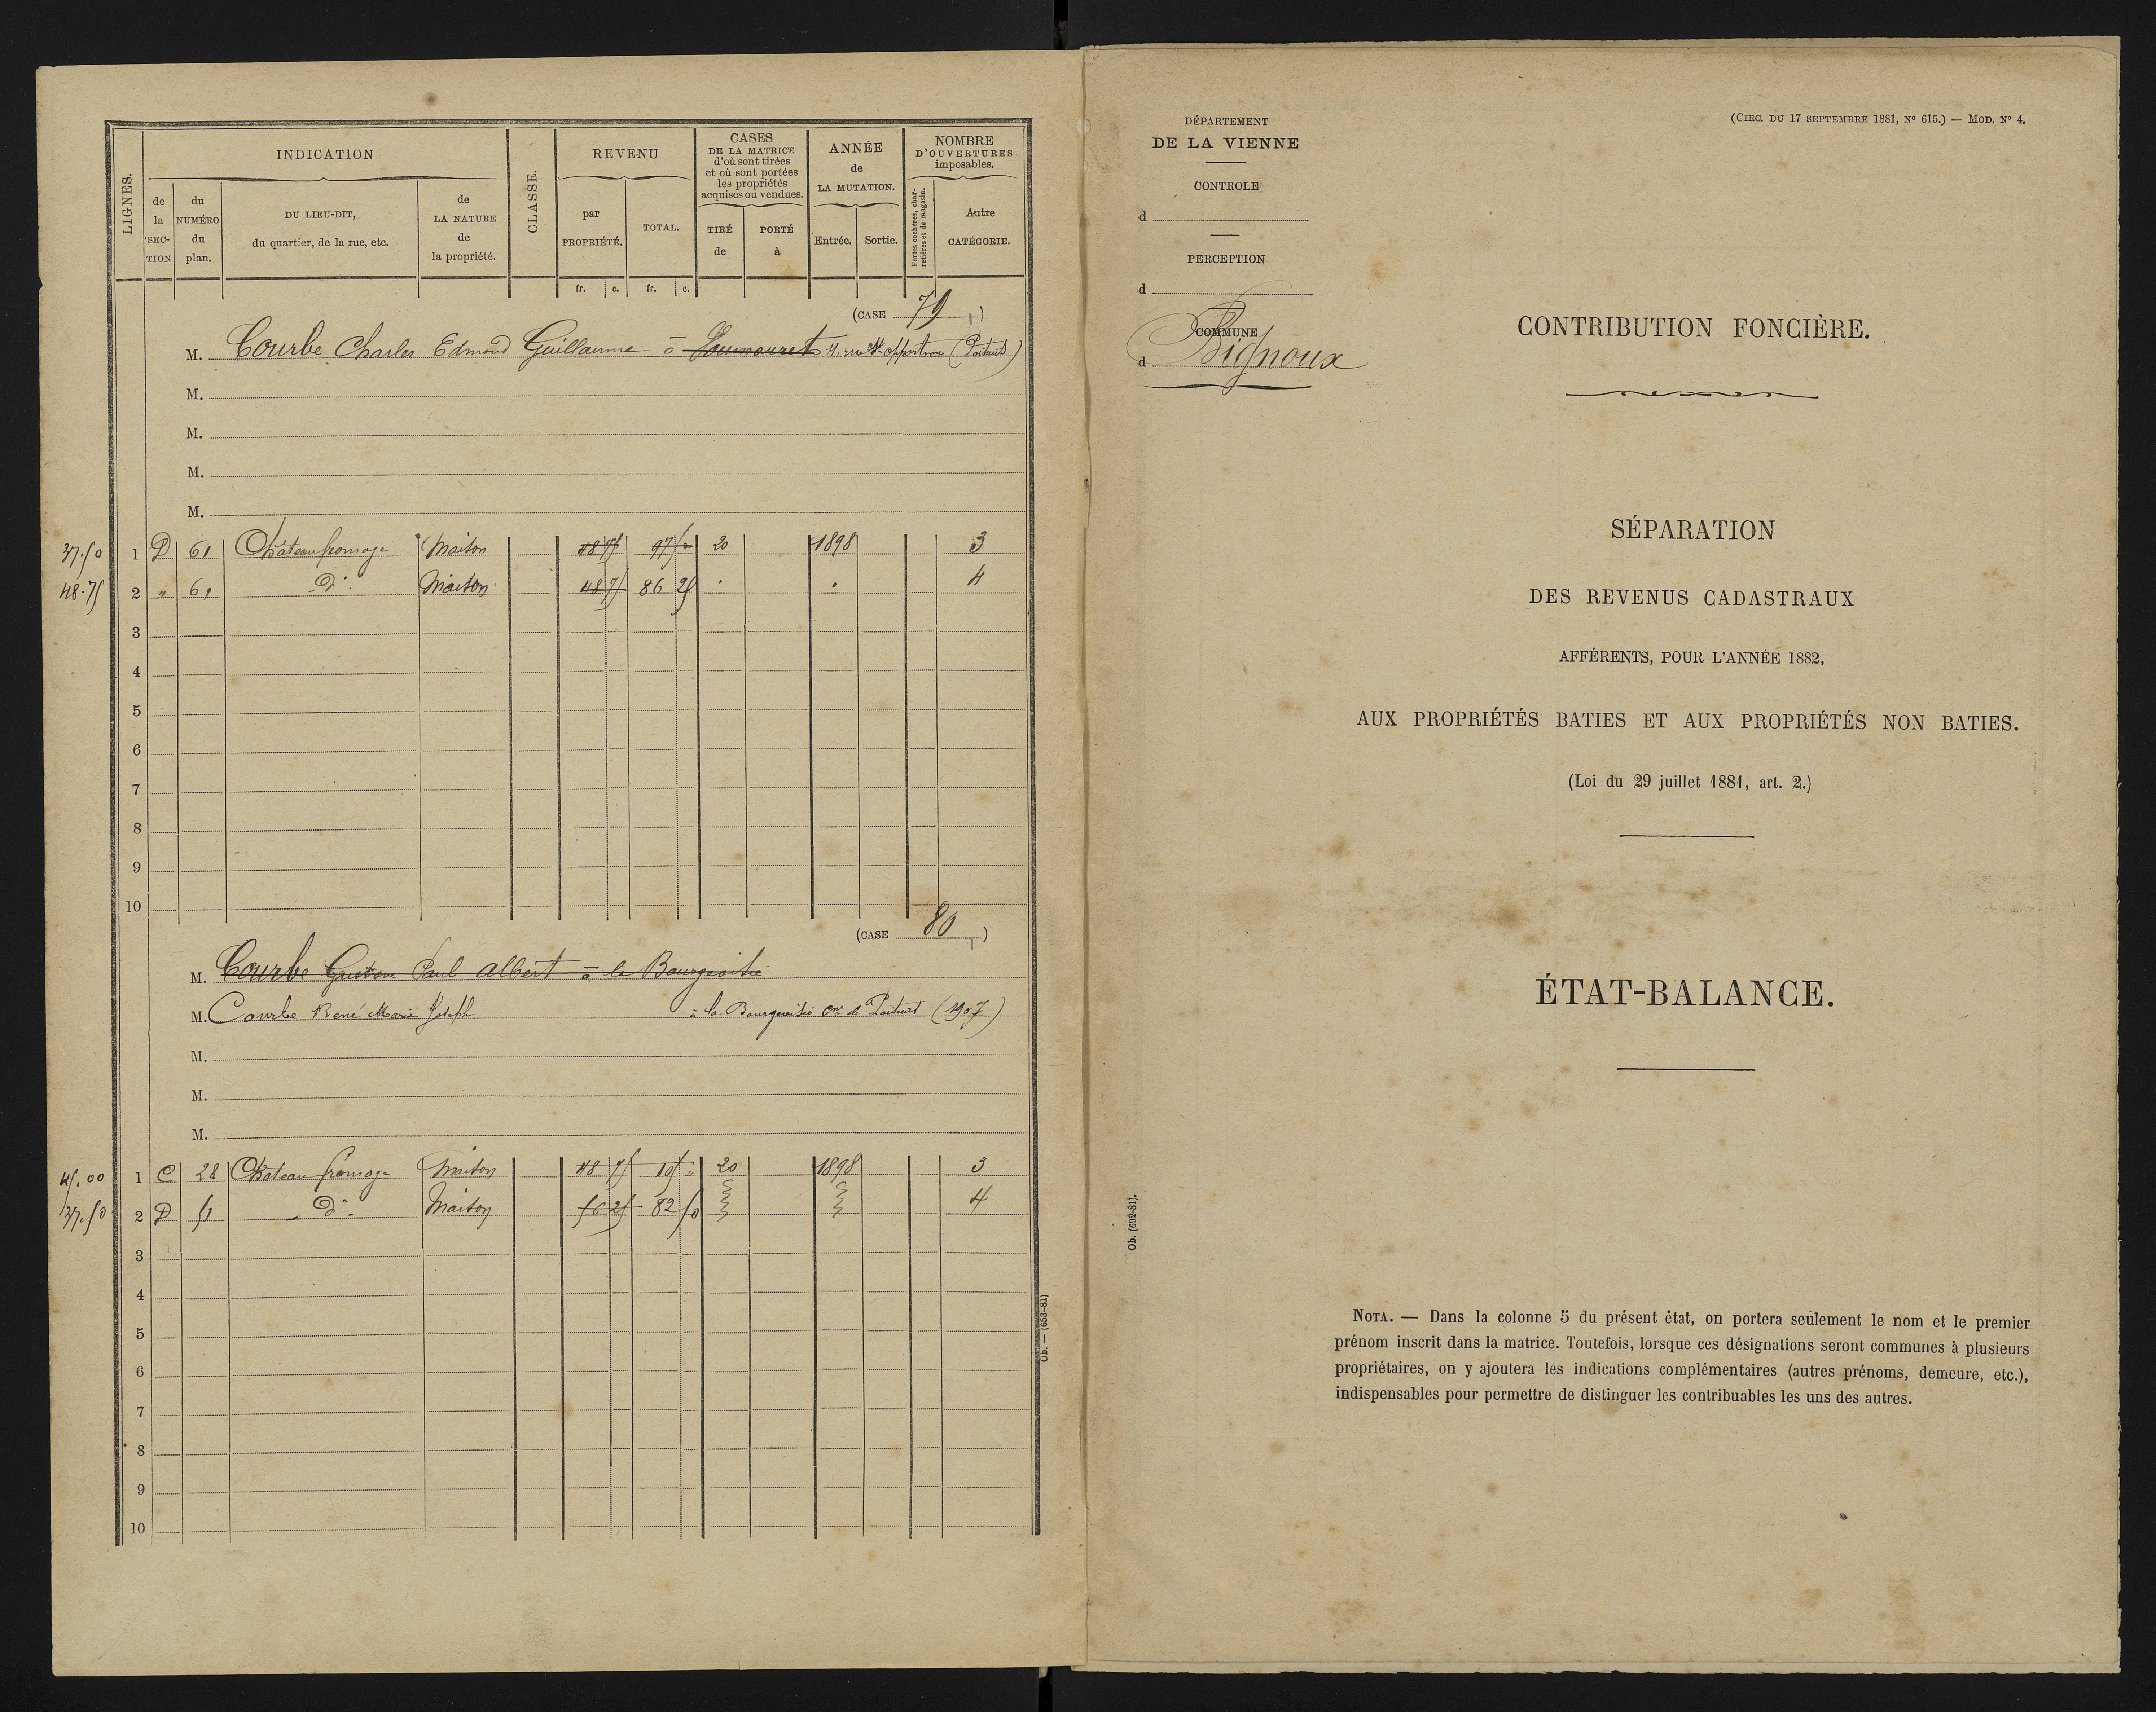 LIGNES.
INDICATION
de la SECTION
du NUMÉRO du plan.
DU LIEU-DIT, du quartier, de la rue, etc.
de LA NATURE de la propriété.
CLASSE.
REVENU
par PROPRIÉTÉ.
TOTAL.
CASES DE LA MATRICE d'où sont tirées et où sont portées les propriétés acquises ou vendues.
TIRÉ de
PORTÉ à
ANNÉE de LA MUTATION.
Entrée.
Sortie.
NOMBRE D'OUVERTURES imposables.
Portes cochères, charretières et de magasin.
Autre CATÉGORIE.
fr. c. fr. c.
(CASE 79)
M. Courbe Charles Edmond Guillaume à 4, rue Ste Opportune (Poitiers)
M.
M.
M.
M.
37.50 1 D 61 Châteaufromage Maison 48 75 97 50 20 1898 3
48.75 2 " 61 do Maison 48 75 86 25 4
3
4
5
6
7
8
9
10
(CASE 80)
M. Courbe Gustave Paul Albert à la Bourgeoisie
M. Courbe René Marie Joseph à la Bourgeoisie Cne de Poitiers (1907)
M.
M.
M.
45.00 1 C 28 Château fromage Maison 48 75 105 " 20 1898 3
37.50 2 D 51 do Maison 56 25 82 50 4
3
4
5
6
7
8
9
10
Ob. — (653-81)
DÉPARTEMENT
DE LA VIENNE
CONTROLE
d
PERCEPTION
d
COMMUNE
d Bignoux
(CIRC. DU 17 SEPTEMBRE 1881, No 615.) — MOD. No 4.
CONTRIBUTION FONCIÈRE.
SÉPARATION
DES REVENUS CADASTRAUX
AFFÉRENTS, POUR L'ANNÉE 1882,
AUX PROPRIÉTÉS BATIES ET AUX PROPRIÉTÉS NON BATIES.
(Loi du 29 juillet 1881, art. 2.)
ÉTAT-BALANCE.
Ob. (692-81).
NOTA. — Dans la colonne 5 du présent état, on portera seulement le nom et le premier
prénom inscrit dans la matrice. Toutefois, lorsque ces désignations seront communes à plusieurs
propriétaires, on y ajoutera les indications complémentaires (autres prénoms, demeure, etc.),
indispensables pour permettre de distinguer les contribuables les uns des autres.